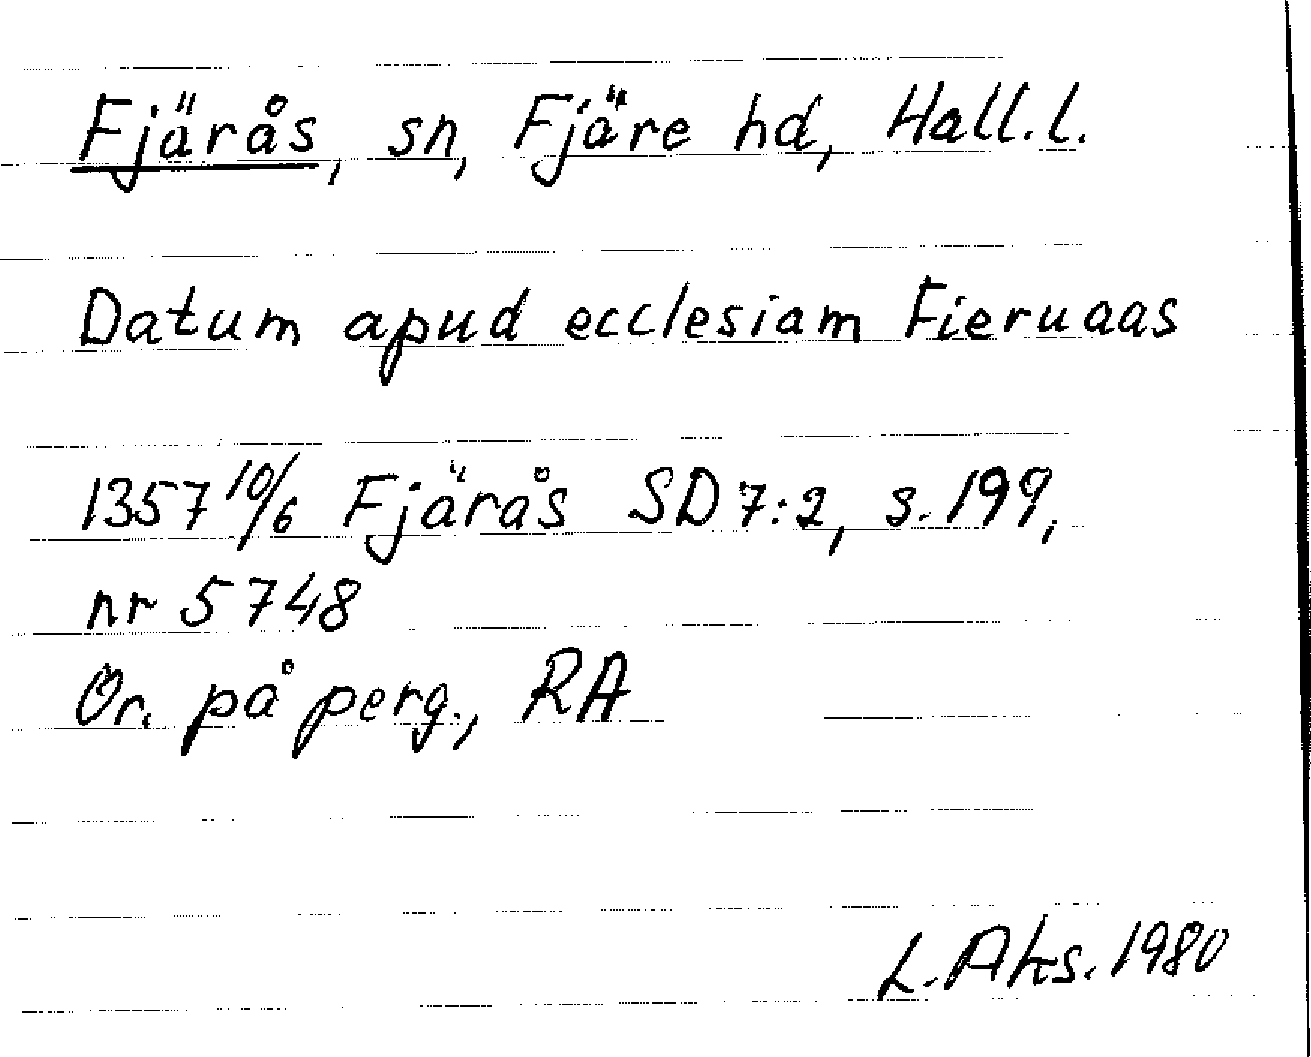 Fjärås, sn, Fjäre hd, Hall.l.
Datum apud ecclesiam Fieruaas
1357 10/6 Fjärås SD 7:2, s. 199,
nr 5748
Or. på perg., RA
L. Aks. 1980